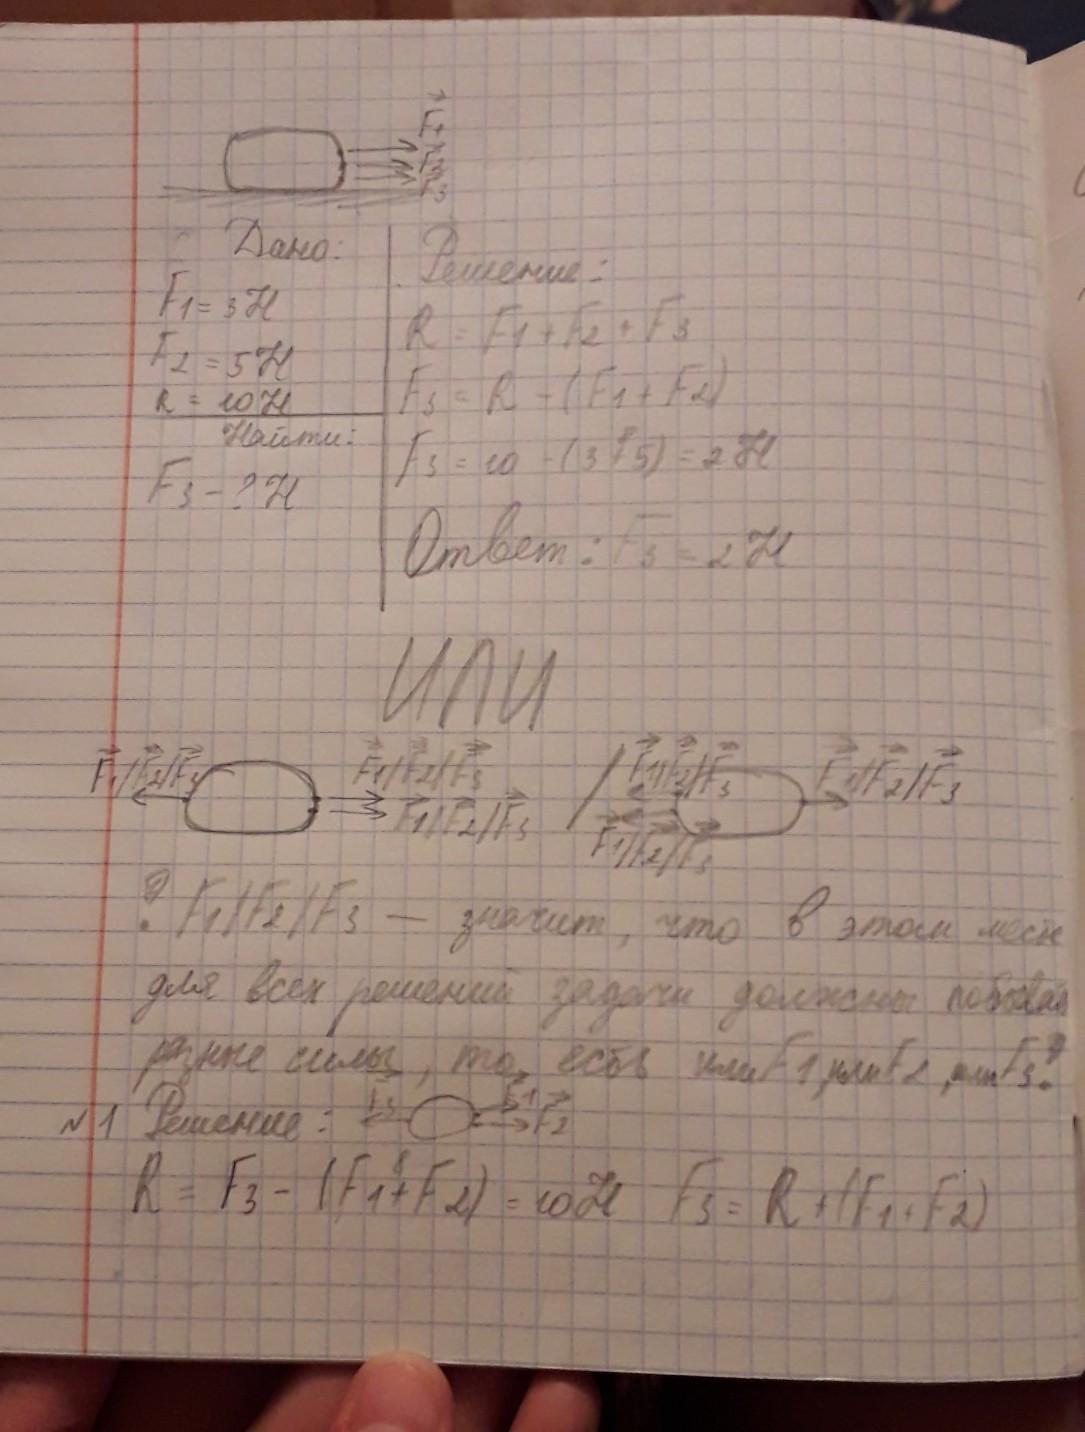 F₁
F₂
F₃
Дано:
F1 = 3Н
F2 = 5Н
R = 10Н
Найти:
F3 - ? Н
Решение:
R = F1 + F2 + F3
F3 = R - (F1 + F2)
F3 = 10 - (3+5) = 2Н
Ответ: F3 = 2Н
ИЛИ
F1/F2/F3 F1/F2/F3 / F1/F2/F3 F1/F2/F3
F1/F2/F3 F1/F2/F3
? F1/F2/F3 — значит, что в этом месте
для всех решений задачи должны
разные силы, то есть или F1, или F2, или F3?
№1 Решение: F3 F1 F2
R = F3 - (F1 + F2) = 10Н F3 = R + (F1 + F2)